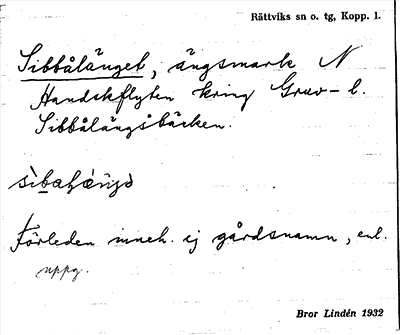 Rättviks sn o. tg, Kopp. l.
Sibbålänget, ängsmark N
Handskflyten kring Gruv- l.
Sibbålängsbäcken.
Förleden inneh. ej gårdsnamn, enl.
uppg.
Bror Lindén 1932